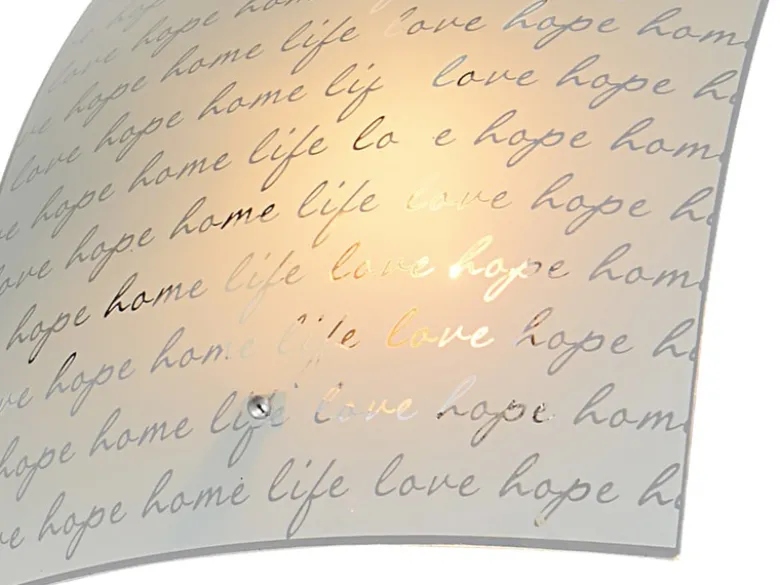 hope
love hope home life love hope home
hope home life love hope
love hope home life love hope home
hope home life love hope
love hope home life love hope home
hope home life love hope
hope home life love hope home
hope home life love hope
love hope home life love hope